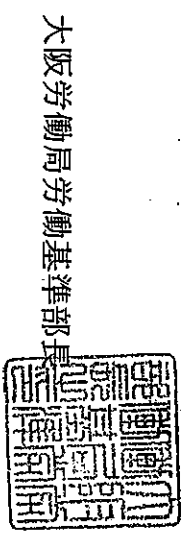 大阪労働局労働基準部長